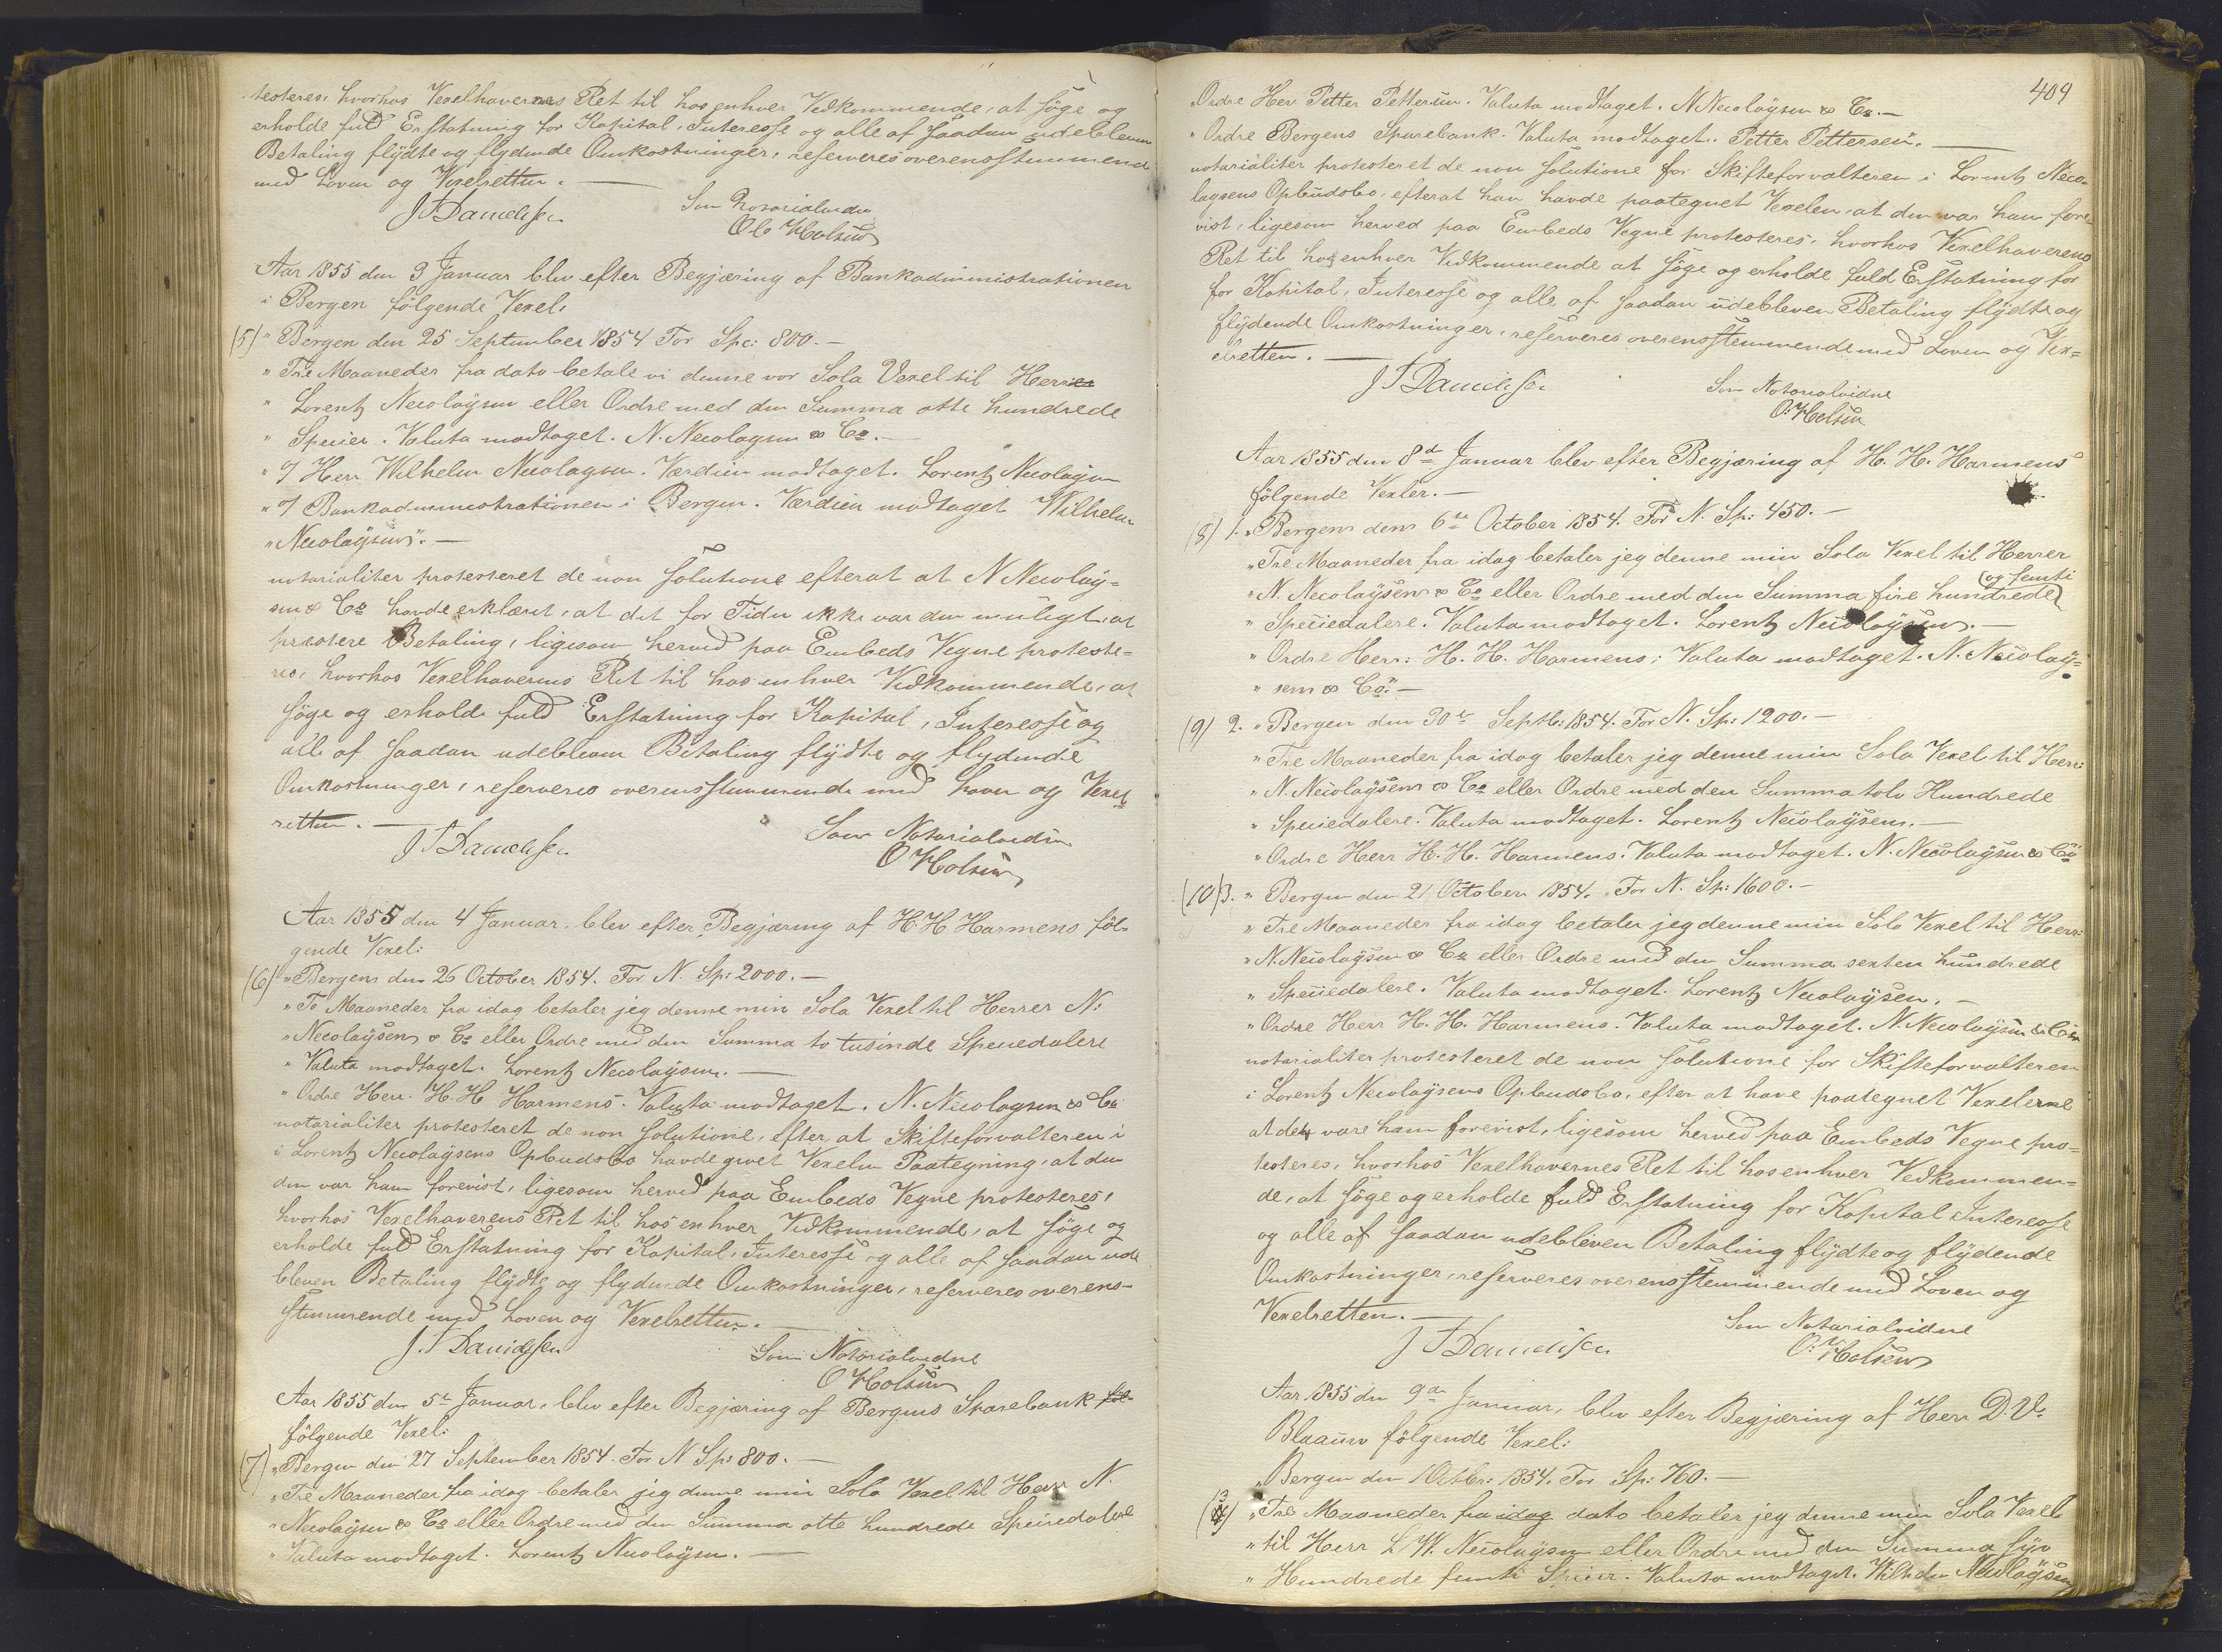 testeres, hvorhos Vexelhavernes Ret til hos enhver Vedkommende, at søge og
erholde fuld Erstatning for Kapital, Interesse og alle af saadan udebleven
Betaling flydte og flydende Omkostninger, reserveres overensstemmende
med Loven og Vexelretten. —
J S Danielssen Som Notarialvidne
O. Holsen
Aar 1855 den 3 Januar blev efter Begjæring af Bankadministrationen
i Bergen følgende Vexel:
(5) " Bergen den 25 September 1854 For Spe: 800. —
" Tre Maaneder fra dato betale vi denne vor Sola Vexel til Herrer
" Lorentz Nicolaÿsen eller Ordre med den Summa otte hundrede
" Specier. Valuta modtaget. N. Nicolaysen & Co. —
" Herr Wilhelm Nicolaysen. Værdien modtaget. Lorentz Nicolaysen
" Bankadministrationen i Bergen. Værdien modtaget Wilhelm
" Nicolaÿsen". —
notarialiter protesteret de non solutione efterat at N Nicolaÿ=
sen & Co havde erklæret, at det for Tiden ikke var dem muligt, at
præstere Betaling, ligesom herved paa Embeds Vegne proteste=
res, hvorhos Vexelhaverens Ret til hos enhver Vedkommende, at
søge og erholde fuld Erstatning for Kapital, Interesse og
alle af saadan udebleven Betaling flÿdte og flydende
Omkostninger, reserveres overensstemmende med Loven og Vexel
retten. —
J S Danielssen Som Notarialvidne
O Holsen
Aar 1855 den 4 Januar blev efter Begjæring af H. H Harmens föl-
gende Vexel:
(6) " Bergen den 26 October 1854. For N. Sp: 2000. —
" To Maaneder fra idag betaler jeg denne min Sola Vexel til Herrer N:
" Nicolaÿsen & Co eller Ordre med den Summa to tusinde Speciedalere
" Valuta modtaget. Lorentz Nicolaÿsen. —
" Ordre Herr. H. H Harmens. Valuta modtaget. N. Nicolaysen & Co
notarialiter protesteret de non solutione, efter at Skifteforvalteren i
i Lorentz Nicolaÿsens Opbudsbo havde givet Vexelen Paategning, at den
den var ham forevist, ligesom herved paa Embeds Vegne protesteres,
hvorhos Vexelhaverens Ret til hos enhver Vedkommende, at søge og
erholde fuld Erstatning for Kapital, Interesse og alle af saadan ude
bleven Betaling flÿdte og flydende Omkostninger, reserveres overens-
stemmende med Loven og Vexelretten. —
J. S Danielssen Som Notarialvidne
O Holsen
Aar 1855 den 5te Januar, blev efter Begjæring af Bergens Sparebank föl-
følgende Vexel:
(7) " Bergen den 27 September 1854. For N Sp: 800. —
" Tre Maaneder fra idag betaler jeg denne min Sola Vexel til Herr N.
" Nicolaÿsen & Co eller Ordre med den Summa otte hundrede Speciedalere
" Valuta modtaget. Lorentz Nicolaÿsen. —
409
" Ordre Herr Petter Pettersen. Valuta modtaget. N Nicolaÿsen & Co. —
" Ordre Bergens Sparebank. Valuta modtaget. Petter Pettersen". —
notarialiter protesteret de non solutione for Skifteforvalteren i Lorentz Nico-
laysens Opbudsbo, efterat han havde paategnet Vexelen, at den var ham fore
vist, ligesom herved paa Embeds Vegne protesteres, hvorhos Vexelhaverens
Ret til hos enhver Vedkommende at søge og erholde fuld Erstatning for
for Kapital, Interesse og alle af saadan udebleven Betaling flÿdte og
flÿdende Omkostninger, reserveres overensstemmende med Loven og Vex=
elretten. —
J S Danielssen Som Notarialvidne
O: Holsen
Aar 1855 den 8de Januar blev efter Begjæring af H. H. Harmens
følgende Vexler. —
(8) 1. " Bergen den 6te October 1854. For N. Sp: 450. —
" Tre Maaneder fra idag betaler jeg denne min Sola Vexel til Herrer
" N. Nicolaÿsen & Co eller Ordre med den Summa fire hundrede (og femti
" Speciedalere. Valuta modtaget. Lorentz Nicolaysen. —
" Ordre Herr: H. H. Harmens; Valuta modtaget. N. Nicolaÿ=
" sen & Co". —
(9) 2. " Bergen den 30te Septb: 1854. For N. Sp: 1200. —
" Tre Maaneder fra idag betaler jeg denne min Sola Vexel til Herr:
" N. Nicolaÿsen & Co eller Ordre med den Summa tolv Hundrede
" Speciedalere. Valuta modtaget. Lorentz Nicolaÿsen. —
" Ordre Herr H. H. Harmens. Valuta modtaget. N. Nicolaÿsen & Co"
(10) 3. " Bergen den 21 October 1854. For N. Sp: 1600. —
" Tre Maaneder fra idag betaler jeg denne min Sola Vexel til Herr:
" N. Nicolaÿsen & Co eller Ordre med den Summa sexten hundrede
" Speciedalere. Valuta modtaget. Lorentz Nicolaÿsen. —
" Ordre Herr H. H. Harmens. Valuta modtaget. N. Nicolaÿsen & Co
notarialiter protesteret de non solutione for Skifteforvalteren
i Lorentz Nicolaÿsens Opbudsbo, efter at have paategnet Vexelerne
at de vare ham forevist, ligesom herved paa Embeds Vegne pro=
testeres, hvorhos Vexelhavernes Ret til hos enhver Vedkommen=
de, at søge og erholde fuld Erstatning for Kapital Interesse
og alle af saadan udebleven Betaling flÿdte og flÿdende
Omkostninger, reserveres overensstemmende med Loven og
Vexelretten. —
J S Danielssen Som Notarialvidne
O: Holsen
Aar 1855 den 9de Januar, blev efter Begjæring af Herr D. V.
Blaauw følgende Vexel:
" Bergen den 1 Octbr: 1854. For Sp: 760. —
(13) " Tre Maaneder fra idag dato betaler jeg denne min Sola Vexel
" til Herr L W. Nicolaysen eller Ordre med den Summa syv
" Hundrede femti Specier. Valuta modtaget. Wilhelm Nicolaÿsen